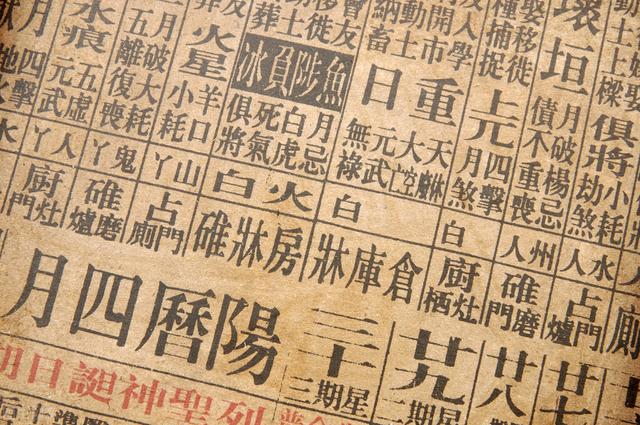 土上樑
壞垣
娶移徙
種捕捉
人學
開市
動土
納畜
會友
移徙
俱將
小耗
劫煞
月破楊忌
債不重喪
上元
四擊
月煞
重日
大空
元武
無祿
魚陟負冰
月忌
白虎
死氣
俱將
火星
羊口
小耗
月破大耗
五離復喪
水痕
五虛
元武
四擊
水人
州人
白
白
火白
山丫
鬼丫
人丫
水
廁
占門爐
碓磨門
厨灶栖
倉庫牀
房牀碓
占門廁
碓磨爐
厨灶門
廿七
廿八
廿九
星期二
三十
星期三
陽曆四月
列聖神誕日